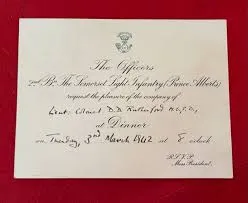 The Officers
2nd Bn. The Somerset Light Infantry (Prince Albert's)
request the pleasure of the company of
Lieut. Colonel D.D. Rutherford M.C.
at Dinner
on Tuesday, 3rd March 1942 at 8 o'clock
R.S.V.P.
Mess President.